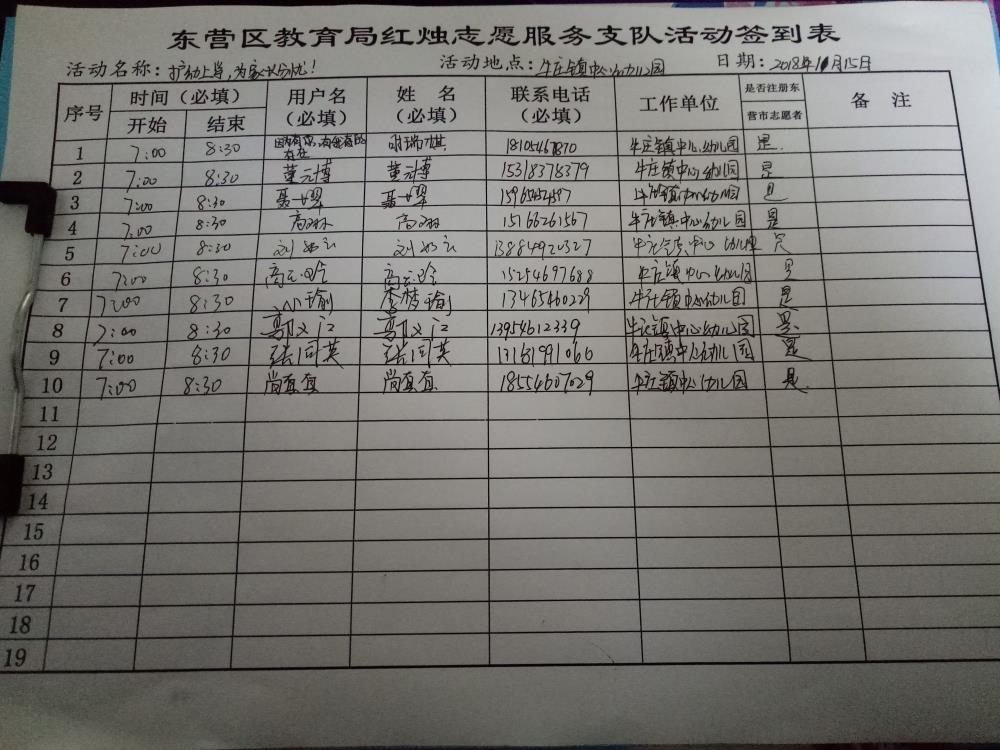 东营区教育局红烛志愿服务支队活动签到表
活动名称：护幼上学，为家长分忧！ 活动地点：牛庄镇中心幼儿园 日期：2018年 月15日
序号 时间（必填） 用户名（必填） 姓 名（必填） 联系电话（必填） 工作单位 是否注册东营市志愿者 备 注
开始 结束
1 7:00 8:30 胡瑞祺 18105467870 牛庄镇中心幼儿园 是
2 7:00 8:30 董元博 董元博 15318378379 牛庄镇中心幼儿园 是
3 7:00 8:30 聂 翠 聂 翠 牛庄镇中心幼儿园 是
4 7:00 8:30 高 高 15166261567 牛庄镇中心幼儿园 是
5 7:00 8:30 刘 刘 13884920327 牛庄镇中心幼儿园 是
6 7:00 8:30 高 高 15254697688 牛庄镇中心幼儿园 是
7 7:00 8:30 小瑜 李梦瑜 13465460229 牛庄镇中心幼儿园 是
8 7:00 8:30 13954612339 牛庄镇中心幼儿园 是
9 7:00 8:30 张同英 张同英 13181991060 牛庄镇中心幼儿园 是
10 7:00 8:30 尚 尚 18554607029 牛庄镇中心幼儿园 是
11
12
13
14
15
16
17
18
19